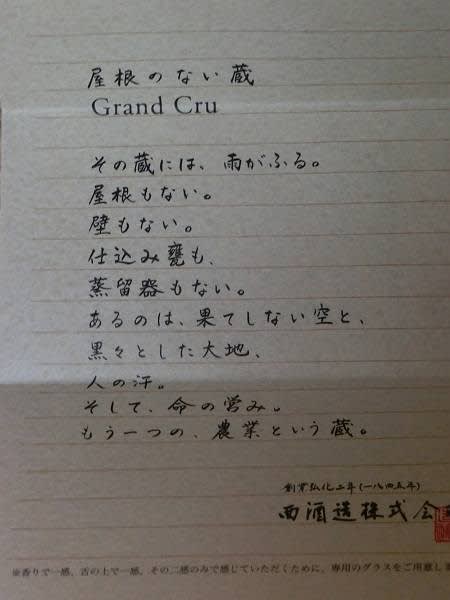 屋根のない蔵
Grand Cru
その蔵には、雨がふる。
屋根もない。
壁もない。
仕込み甕も、
蒸留器もない。
あるのは、果てしない空と、
黒々とした大地、
人の汗。
そして、命の営み。
もう一つの、農業という蔵。
創業弘化二年(一八四五年)
西酒造株式会
※香りで一感、舌の上で一感、その二感のみで感じていただくために、専用のグラスをご用意しま